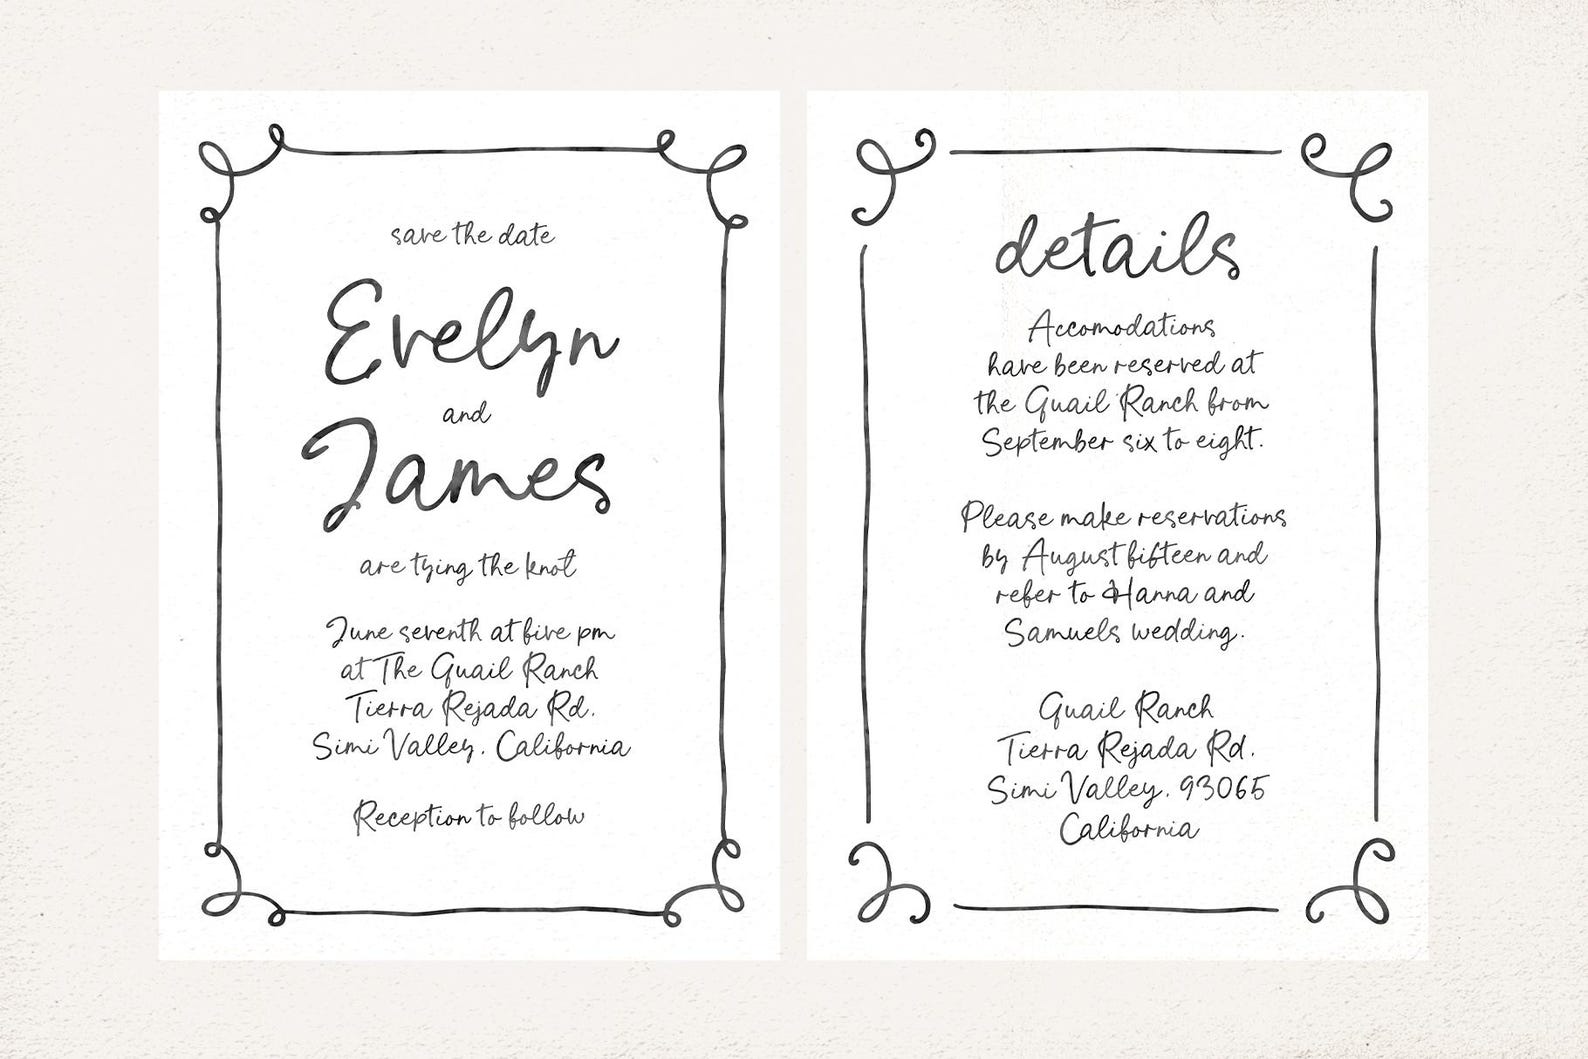 save the date
Evelyn
and
James
are tying the knot
June seventh at five pm
at The Quail Ranch
Tierra Rejada Rd.
Simi Valley. California
Reception to follow
details
Accomodations
have been reserved at
the Quail Ranch from
September six to eight.
Please make reservations
by August fifteen and
refer to Hanna and
Samuels wedding.
Quail Ranch
Tierra Rejada Rd.
Simi Valley. 93065
California